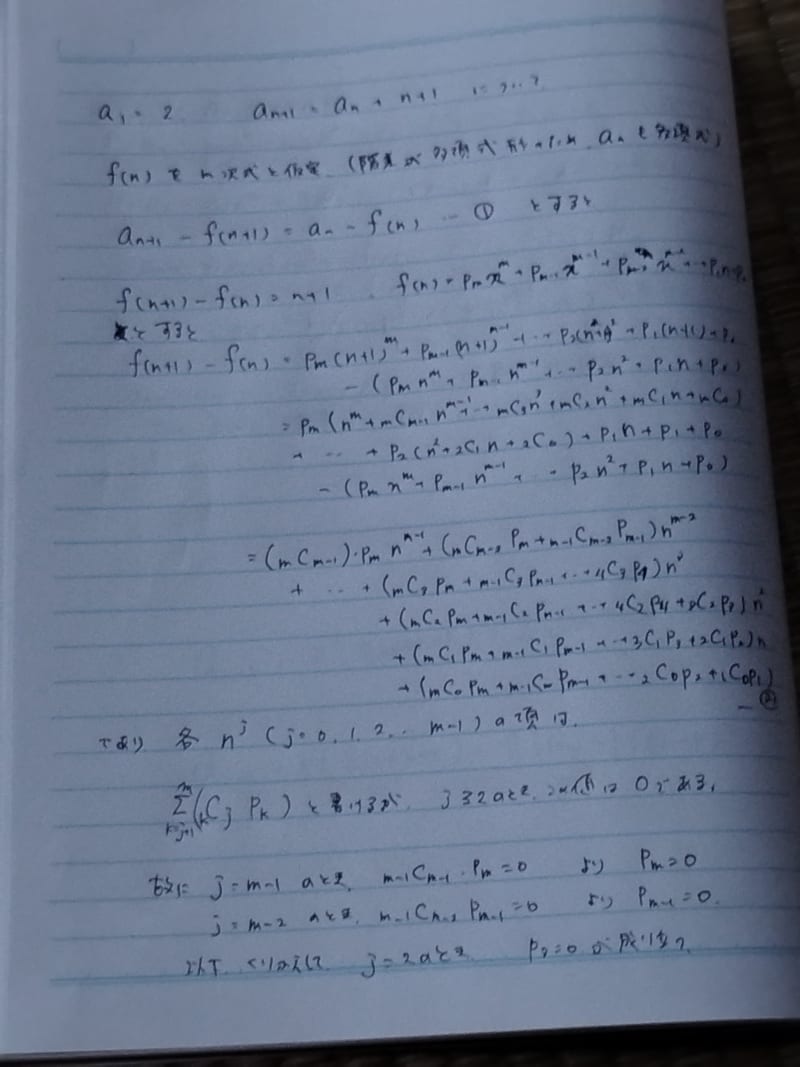 a₁ = 2 aₙ₊₁ = aₙ + n+1
f(n) を m次式と仮定 (階差式 多項式 aₙも多項式)
aₙ₊₁ - f(n+1) = aₙ - f(n) … ① とすると
f(n+1) - f(n) = n+1 f(n) = pₘxᵐ + pₘ₋₁xᵐ⁻¹ + pₘ₋₂ + … p₁n+p₀
とすると
f(n+1) - f(n) = pₘ(n+1)ᵐ + pₘ₋₁(n+1)ᵐ⁻¹ + … + p₁(n+1) + p₀
- (pₘnᵐ + pₘ₋₁nᵐ⁻¹ + … p₂n² + p₁n + p₀)
= pₘ(nᵐ + ₘCₘ₋₁nᵐ⁻¹ + … + ₘC₃n³ + ₘC₂n² + ₘC₁n + ₘC₀)
+ … + p₂(n² + ₂C₁n + ₂C₀) + p₁n + p₁ + p₀
- (pₘnᵐ + pₘ₋₁nᵐ⁻¹ + … p₂n² + p₁n + p₀)
= (ₘCₘ₋₁)・pₘnᵐ⁻¹ + (ₘCₘ₋₂pₘ + ₘ₋₁Cₘ₋₂pₘ₋₁)nᵐ⁻²
+ … + (ₘC₃pₘ + ₘ₋₁C₃pₘ₋₁ + … + ₄C₃p₄)n³
+ (ₘC₂pₘ + ₘ₋₁C₂pₘ₋₁ + … ₄C₂p₄ + ₃C₂p₃)n²
+ (ₘC₁pₘ + ₘ₋₁C₁pₘ₋₁ + … ₃C₁p₃ + ₂C₁p₂)n
+ (ₘC₀pₘ + ₘ₋₁C₀pₘ₋₁ + … ₂C₀p₂ + ₁C₀p₁)
… ②
であり 各 nʲ (j=0, 1, 2, … m-1) の項は、
Σᵐₖ₌ⱼ₊₁(ₖCⱼ pₖ) と書けるが j≧2のとき、この値は 0である。
故に j=m-1 のとき、ₘ₋₁Cₘ₋₁・pₘ=0 より pₘ=0
j=m-2 のとき、ₘ₋₁Cₘ₋₂ pₘ₋₁=0 より pₘ₋₁=0.
以下 くりかえして j=2のとき p₃=0 が成り立つ